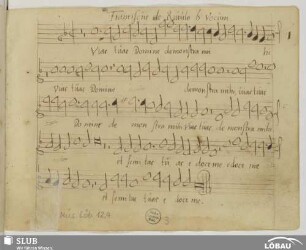 Francisci de Rivulo 6 Vocum
1
Vias tuas Domine demonstra mihi
Vias tuas Domine demonstra mihi, vias tuas
Domine demonstra mihi vias tuas demonstra mihi
et semitas tuas e doce me edoce me
et semitas tuas e doce me.
Mus. Löb. 12,4
3
SLUB
LÖBAU